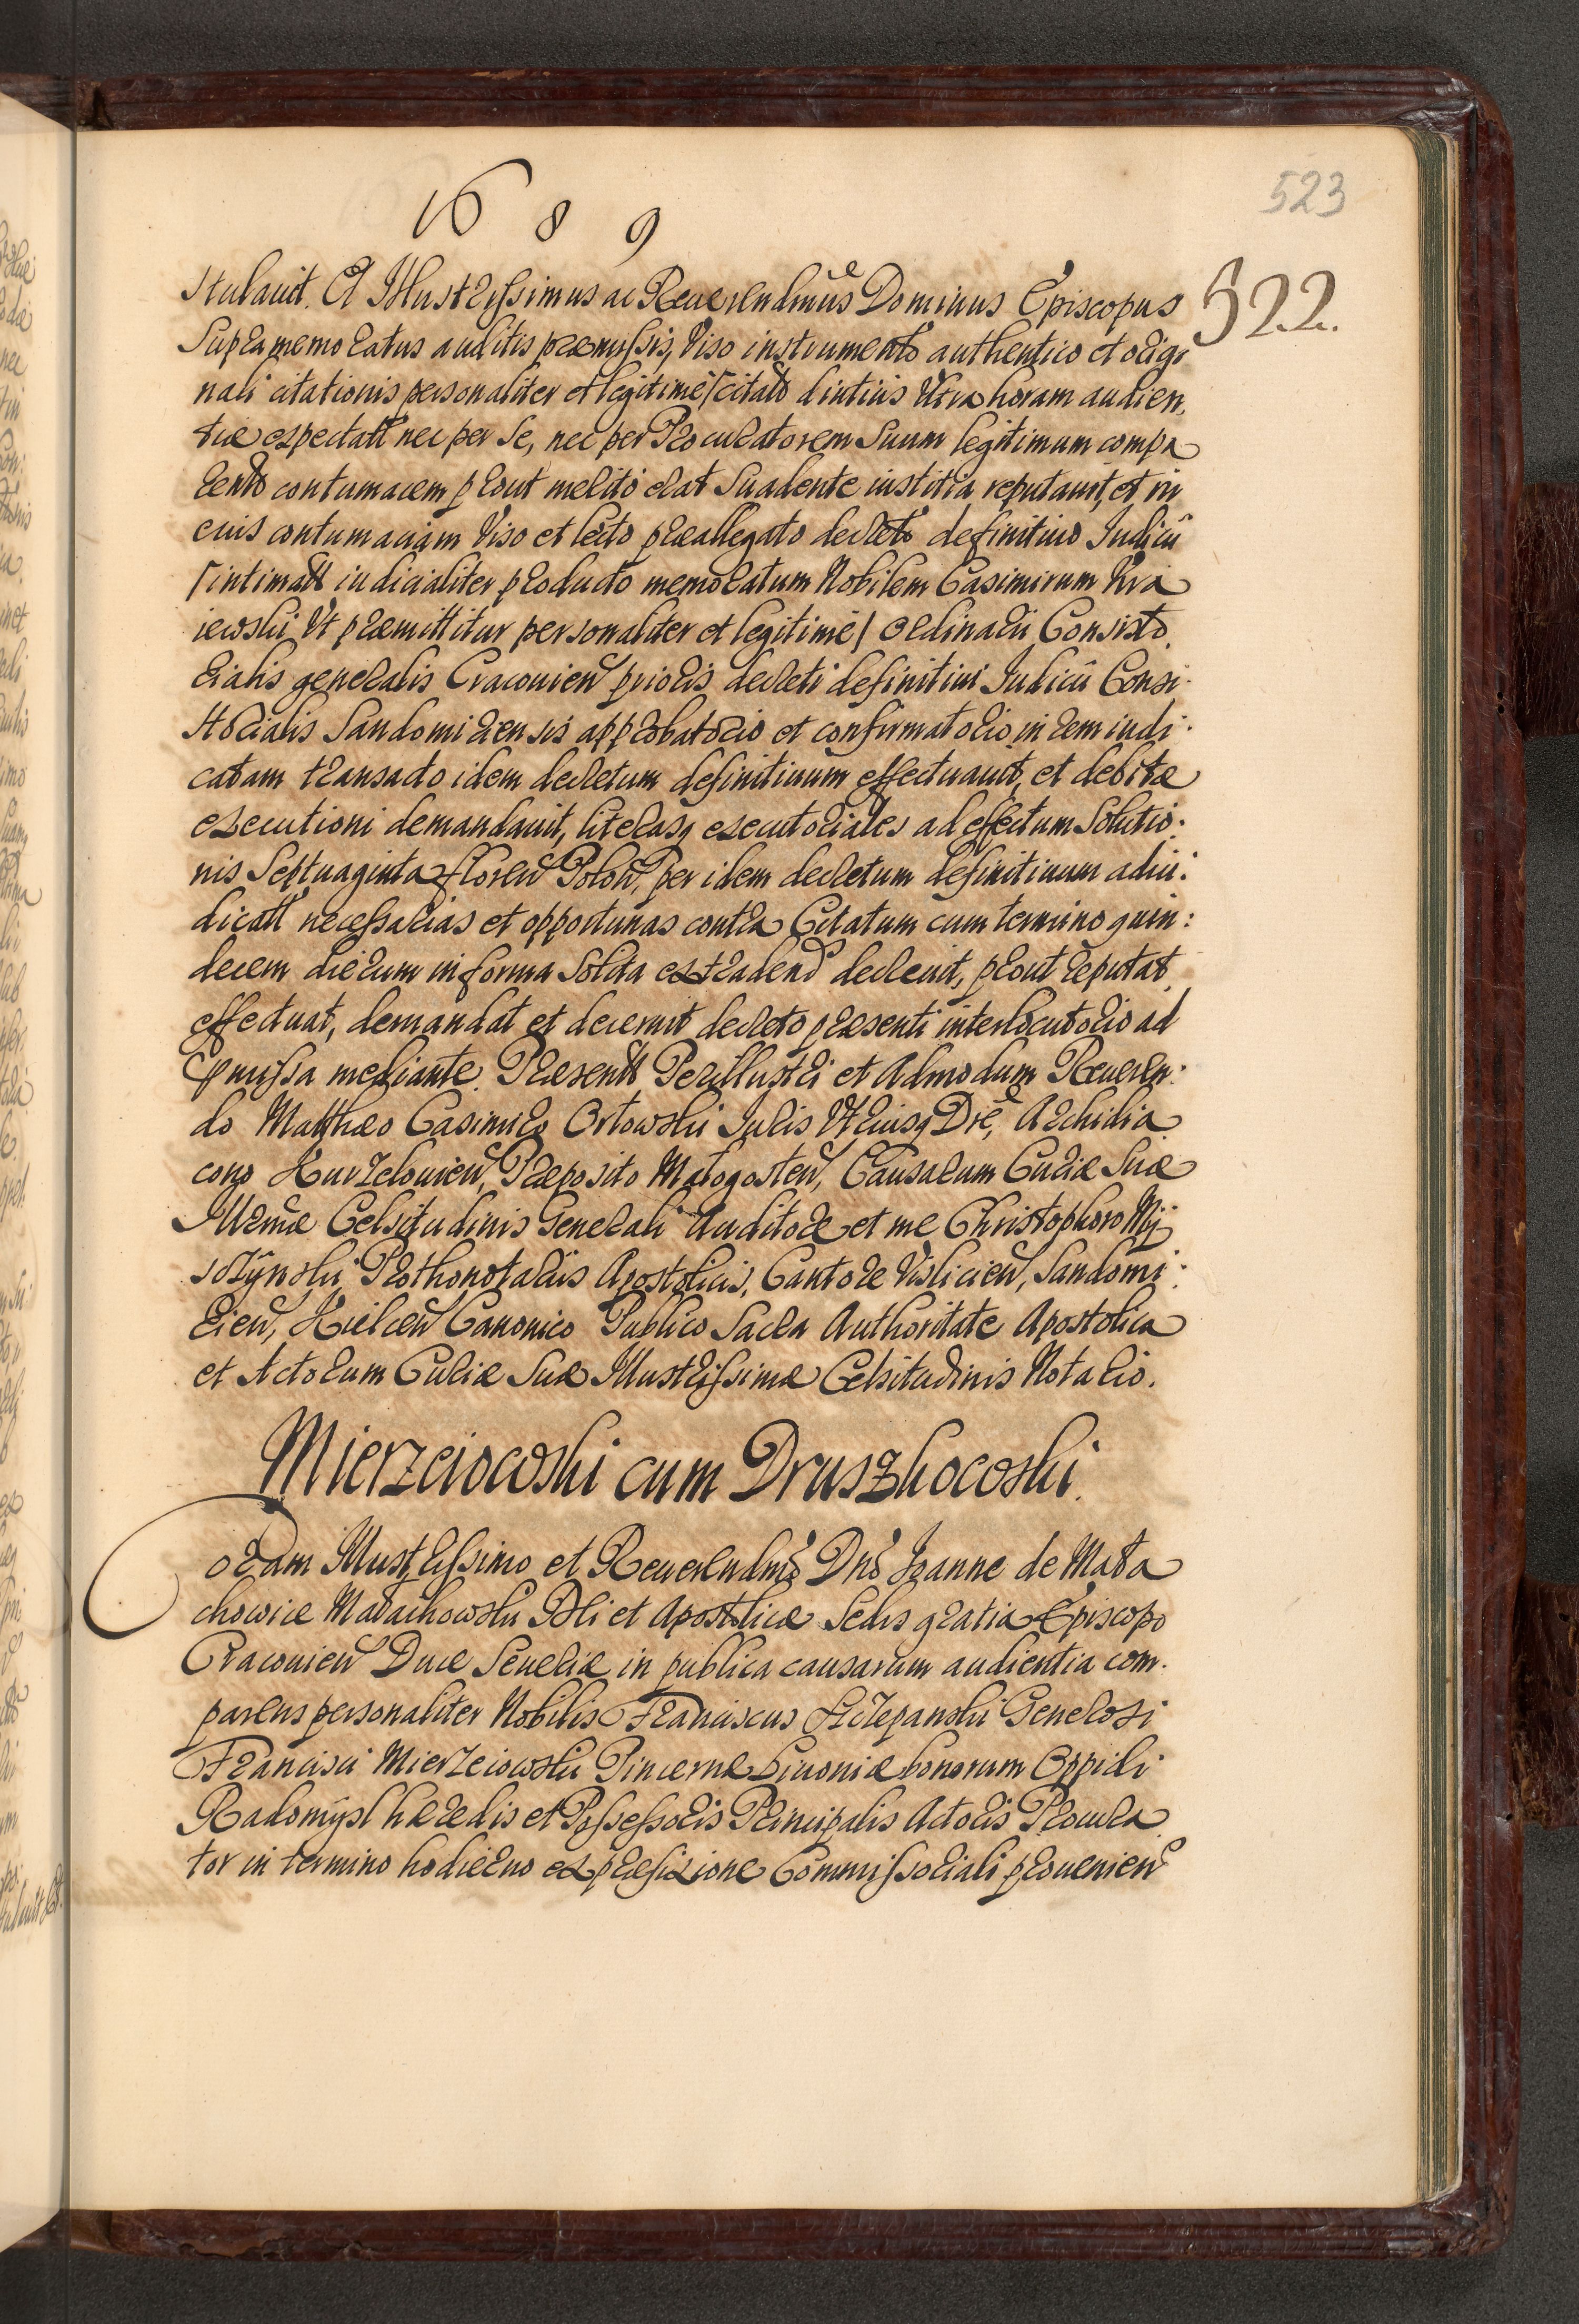 1689
523
522.
stulauit. Et Illustrissimus ac Reuerendmus Dominus Episcopus
Supramemoratus auditis præmissis, Viso instrumento authentico et origi
nali citationis personaliter et legitime / citato diutius Vltra horam audien,
tiæ expectatt nec per se, nec per Procuratorem Suum legitimum compa
rento contumacem prout merito erat Suadente iustitia reputauit, et in
eius contumaciam Viso et lecto præallegato decreto definitiuo Iudicii
/ intimatt iudicialiter producto memoratum Nobilem Casimirum
iewski Vt præmittitur personaliter et legitime / Ordinarii Consisto,
rialis generalis Cracouien prioris decreti definitiui Iudicii Consi-
storialis Sandomiriensis approbatorio et confirmatorio in rem iudi-
catam transacto idem decretum definitiuum effectuauit, et debitæ
executioni demandauit, literasq executoriales ad effectum Solutio-
nis Septuaginta floren Polon, per idem decretum definitiuum adiu:
dicatt necessarias et opportunas contra Citatum cum termino quin:
decem dierum in forma Solita extradend decreuit, prout reputat,
effectuat, demandat et decernit decreto præsenti interlocutorio ad
præmissa mediante. Præsentt Perillustri et Admodum Reueren:
do Matthæo Casimiro Orłowski Iuris Vtriusq Dre, Archidia
cono Kurzelouien, Præposito Małogosten, Causarum Curiæ Suæ
Illrmæ Celsitudinis Generali Auditore et me Christophoro Mÿ
szÿnski Prothonotariis Apostolicis, Cantore Vislicien, Sandomi:
rien, Kielcen Canonico Publico Sacra Authoritate Apostolica
et Actorum Curiæ Suæ Illustrissimæ Celsitudinis Notario.
Mierzeiowski cum Druszkowski.
Coram Illustrissimo et Reuerendmo Dno Joanne de Mała
chowice Małachowski Dei et Apostolicæ Sedis gratia Episcopo
Cracouien Duce Seueriæ in publica causarum audientia com-
parens personaliter Nobilis Franciscus Sczepanski Generosi
Francisci Mierzeiowski Pincernæ Liuoniæ bonorum Oppidi
Radomÿsl hæredis et Possessoris Principalis Actoris Procura
tor in termino hodierno ex præfixione Commissoriali prouenien